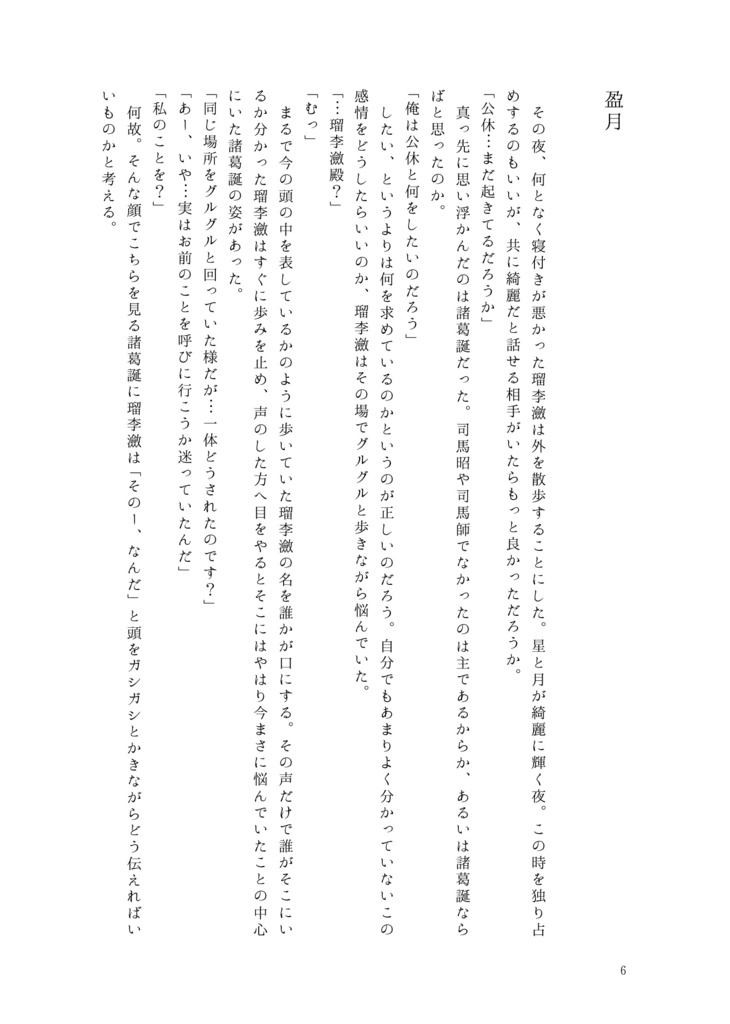 盈月
その夜、何となく寝付きが悪かった瑠李瀲は外を散歩することにした。星と月が綺麗に輝く夜。この時を独り占
めするのもいいが、共に綺麗だと話せる相手がいたらもっと良かっただろうか。
「公休…まだ起きてるだろうか」
真っ先に思い浮かんだのは諸葛誕だった。司馬昭や司馬師でなかったのは主であるからか、あるいは諸葛誕なら
ばと思ったのか。
「俺は公休と何をしたいのだろう」
したい、というよりは何を求めているのかというのが正しいのだろう。自分でもあまりよく分かっていないこの
感情をどうしたらいいのか、瑠李瀲はその場でグルグルと歩きながら悩んでいた。
「…瑠李瀲殿？」
「むっ」
まるで今の頭の中を表しているかのように歩いていた瑠李瀲の名を誰かが口にする。その声だけで誰がそこにい
るか分かった瑠李瀲はすぐに歩みを止め、声のした方へ目をやるとそこにはやはり今まさに悩んでいたことの中心
にいた諸葛誕の姿があった。
「同じ場所をグルグルと回っていた様だが…一体どうされたのです？」
「あー、いや…実はお前のことを呼びに行こうか迷っていたんだ」
「私のことを？」
何故。そんな顔でこちらを見る諸葛誕に瑠李瀲は「そのー、なんだ」と頭をガシガシとかきながらどう伝えればい
いものかと考える。
6